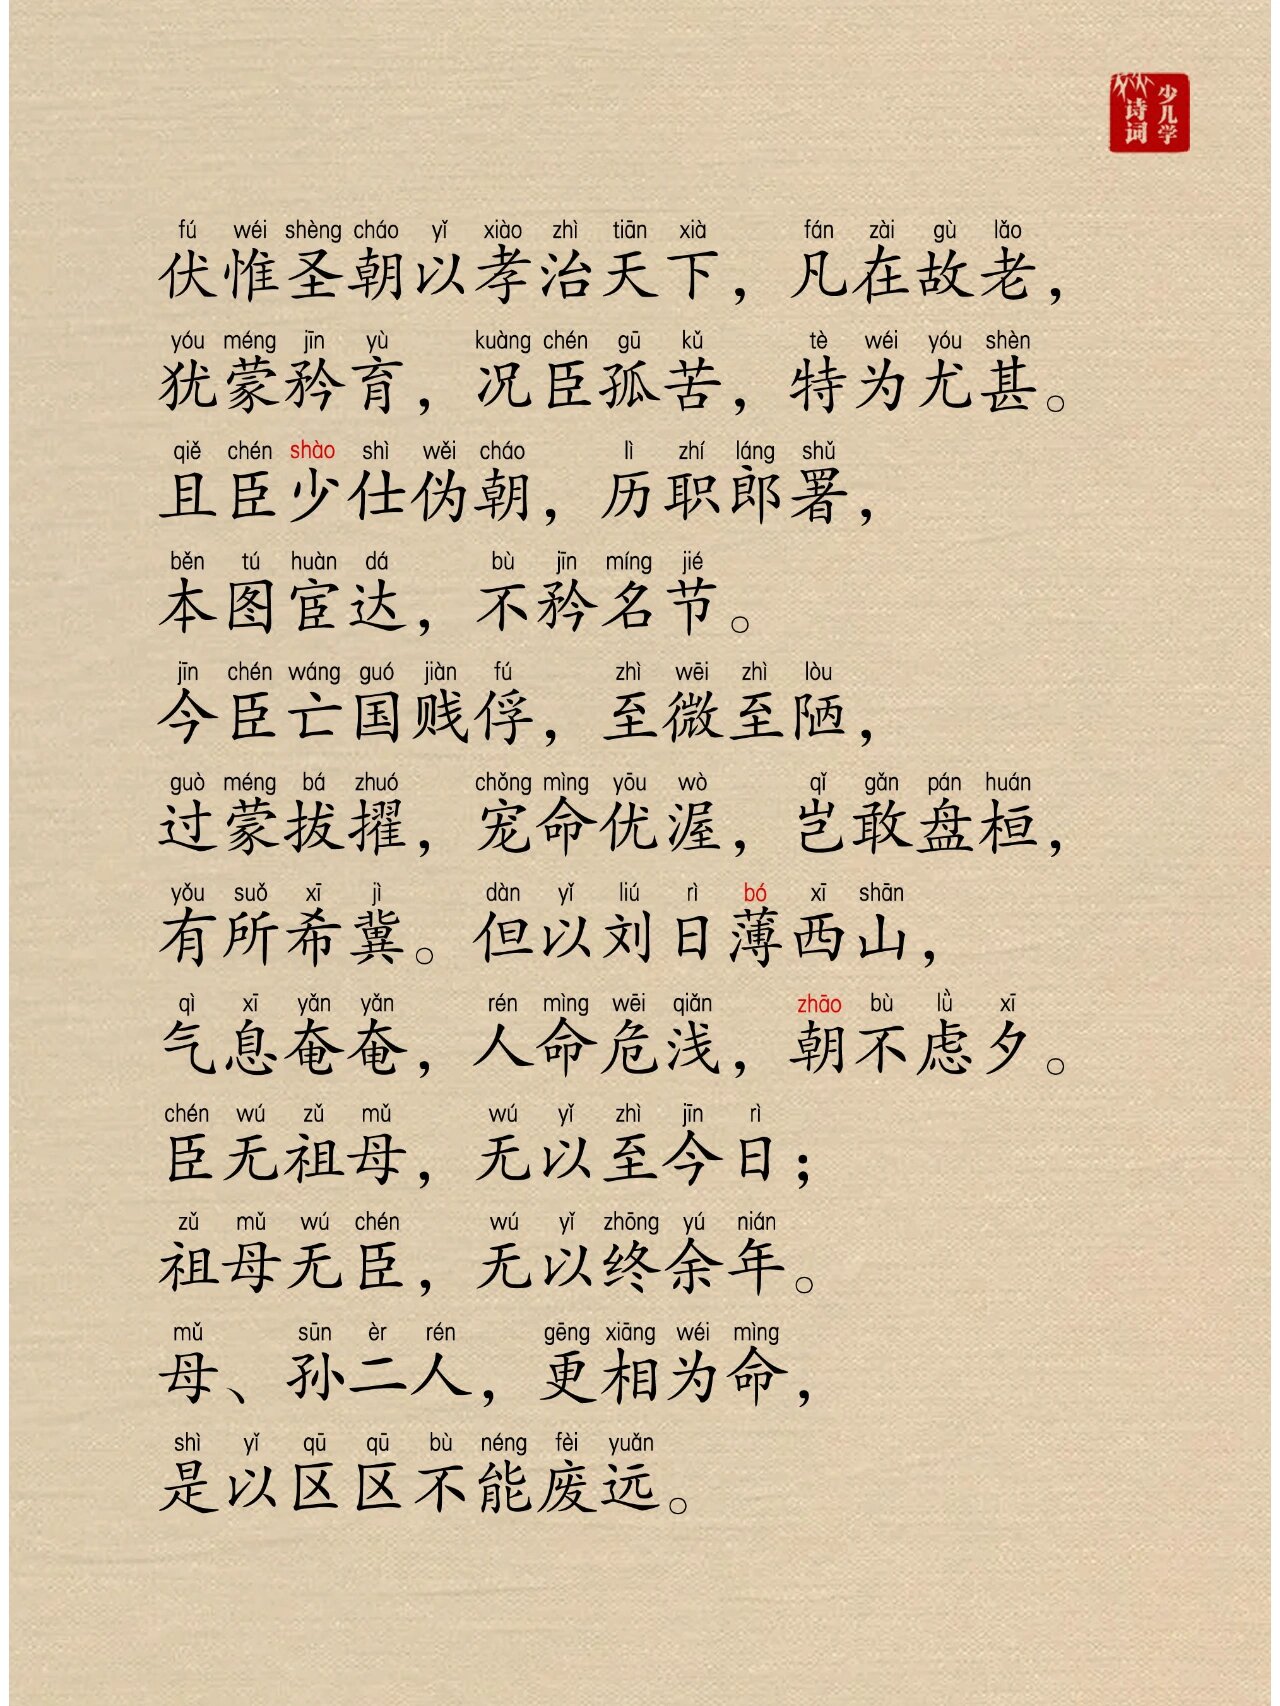 少儿学
诗词
fú wéi shèng cháo yǐ xiào zhì tiān xià fán zài gù lǎo
伏惟圣朝以孝治天下，凡在故老，
yóu méng jīn yù kuàng chén gū kǔ tè wéi yóu shèn
犹蒙矜育，况臣孤苦，特为尤甚。
qiě chén shào shì wěi cháo lì zhí láng shǔ
且臣少仕伪朝，历职郎署，
běn tú huàn dá bù jīn míng jié
本图宦达，不矜名节。
jīn chén wáng guó jiàn fú zhì wēi zhì lòu
今臣亡国贱俘，至微至陋，
guò méng bá zhuó chǒng mìng yōu wò qǐ gǎn pán huán
过蒙拔擢，宠命优渥，岂敢盘桓，
yǒu suǒ xī jì dàn yǐ liú rì bó xī shān
有所希冀。但以刘日薄西山，
qì xī yǎn yǎn rén mìng wēi qiǎn zhāo bù lǜ xī
气息奄奄，人命危浅，朝不虑夕。
chén wú zǔ mǔ wú yǐ zhì jīn rì
臣无祖母，无以至今日；
zǔ mǔ wú chén wú yǐ zhōng yú nián
祖母无臣，无以终余年。
mǔ sūn èr rén gēng xiāng wéi mìng
母、孙二人，更相为命，
shì yǐ qū qū bù néng fèi yuǎn
是以区区不能废远。